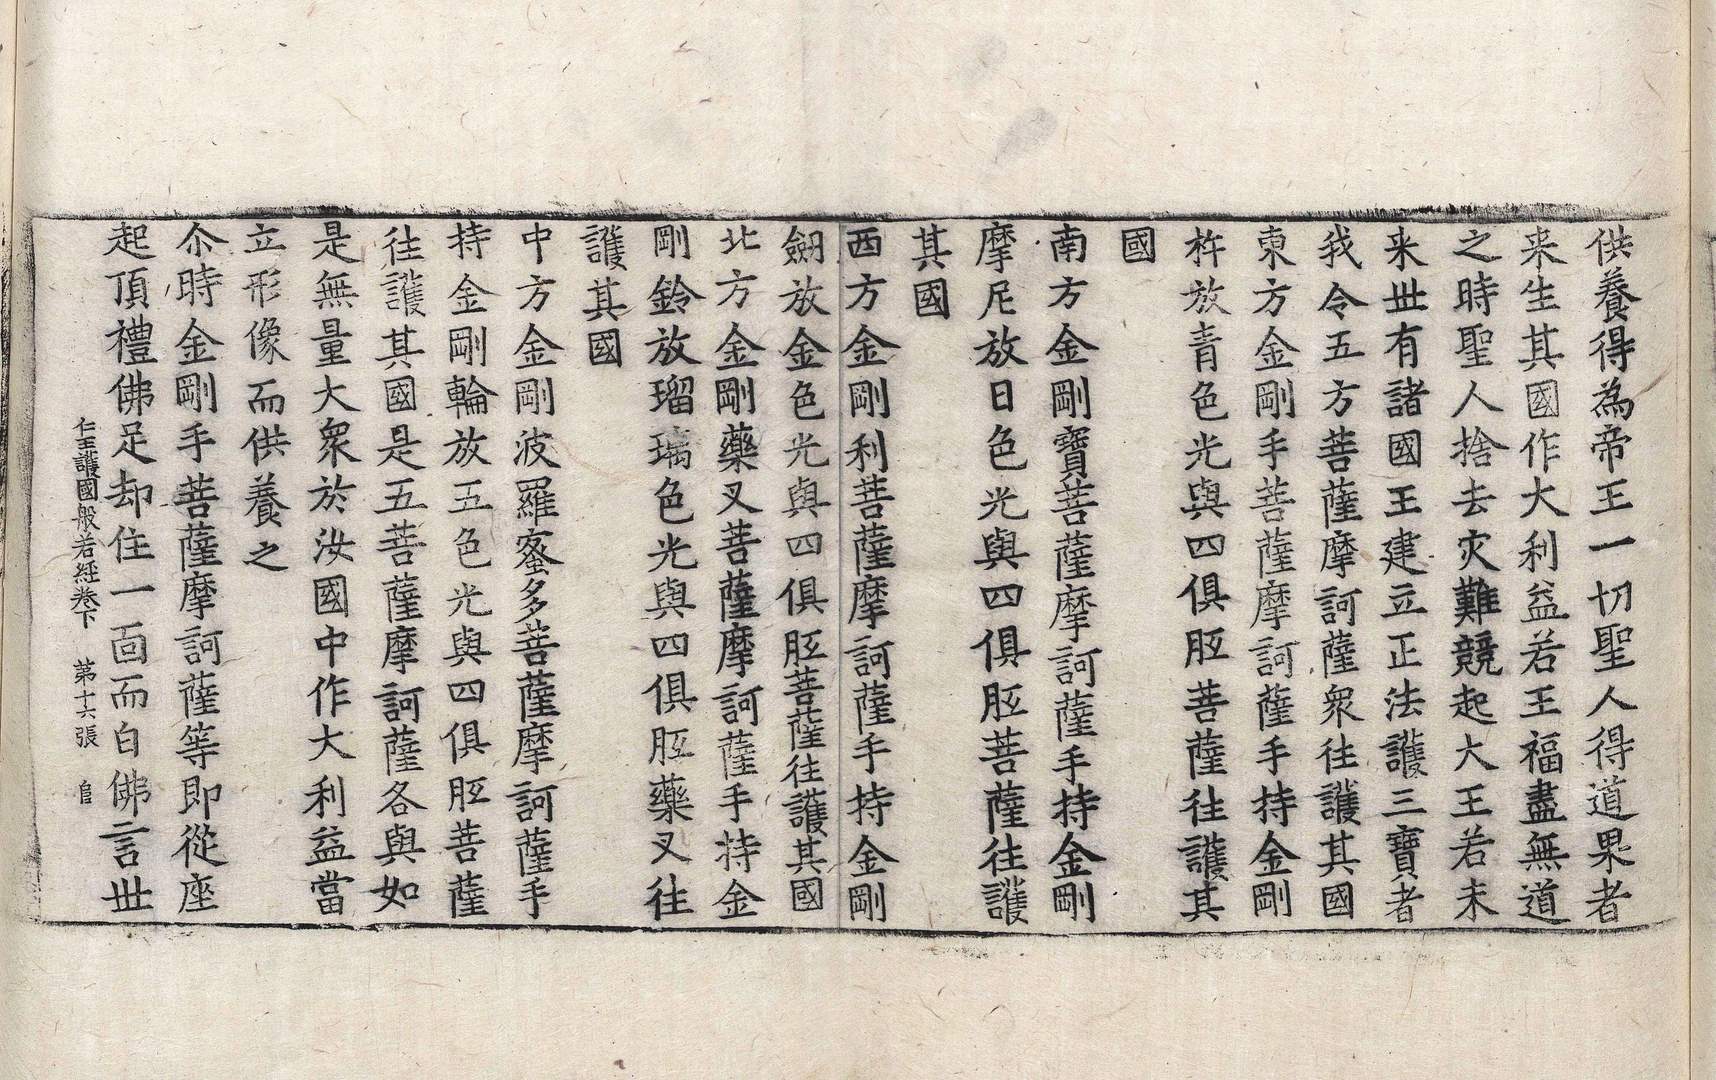 供養得為帝王一切聖人得道果者
来生其國作大利益若王福盡無道
之時聖人捨去灾難競起大王若未
来世有諸國王建立正法護三寶者
我令五方菩薩摩訶薩衆往護其國
東方金剛手菩薩摩訶薩手持金剛
杵放青色光與四俱胝菩薩往護其
國
南方金剛寶菩薩摩訶薩手持金剛
摩尼放日色光與四俱胝菩薩往護
其國
西方金剛利菩薩摩訶薩手持金剛
劒放金色光與四俱胝菩薩往護其國
北方金剛藥叉菩薩摩訶薩手持金
剛鈴放瑠璃色光與四俱胝藥叉往
護其國
中方金剛波羅蜜多菩薩摩訶薩手
持金剛輪放五色光與四俱胝菩薩
往護其國是五菩薩摩訶薩各與如
是無量大衆於汝國中作大利益當
立形像而供養之
尒時金剛手菩薩摩訶薩等即從座
起頂禮佛足却住一面而白佛言世
仁王護國般若經卷下 第十六張 自